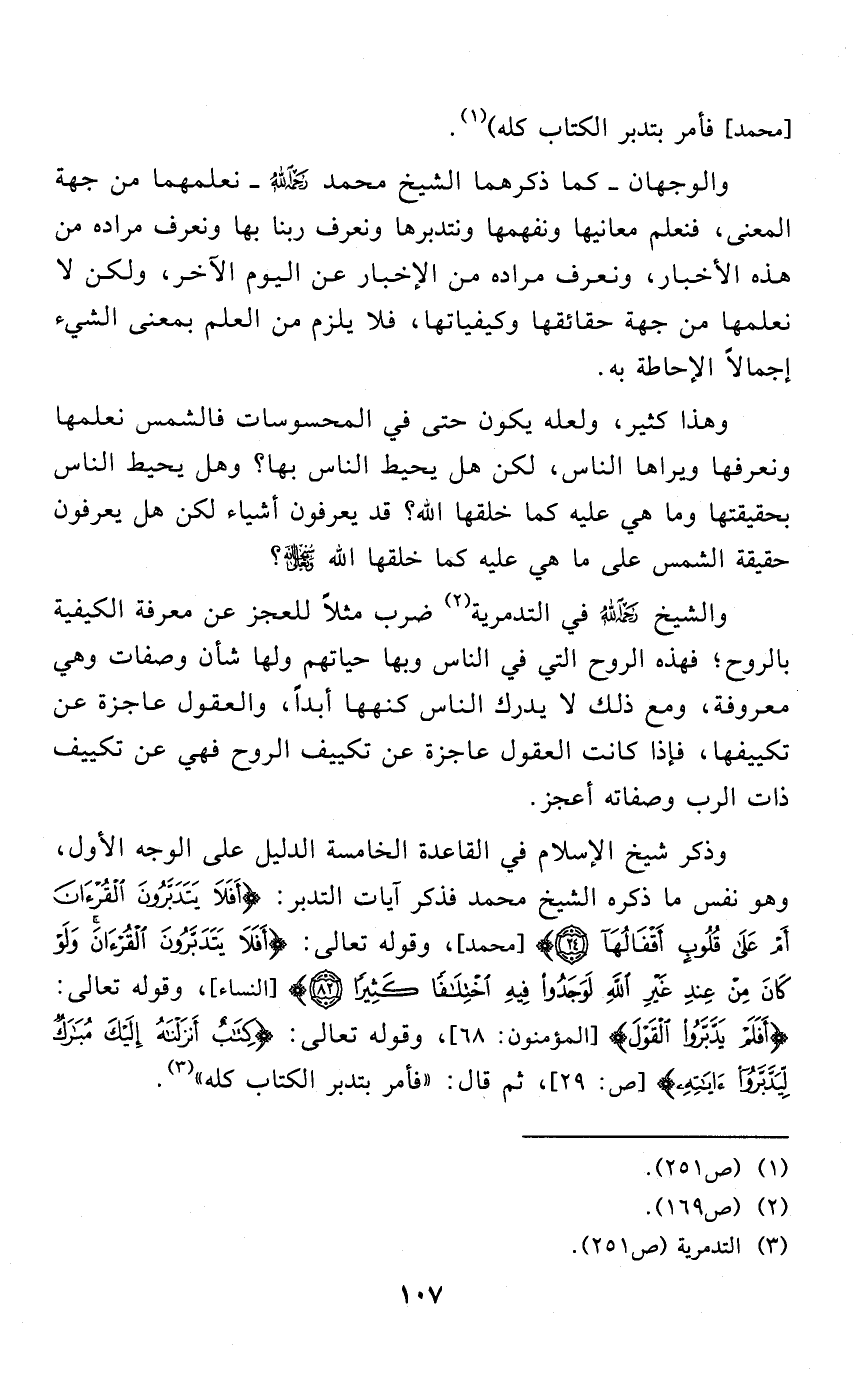 [محمد] فأمر بتدبر الكتاب كله)(١).
والوجهان ـ كما ذكرهما الشيخ محمد رحمه الله ـ نعلمهما من جهة
المعنى، فنعلم معانيها ونفهمها ونتدبرها ونعرف ربنا بها ونعرف مراده من
هذه الأخبار، ونعرف مراده من الإخبار عن اليوم الآخر، ولكن لا
نعلمها من جهة حقائقها وكيفياتها، فلا يلزم من العلم بمعنى الشيء
إجمالاً الإحاطة به.
وهذا كثير، ولعله يكون حتى في المحسوسات فالشمس نعلمها
ونعرفها ويراها الناس، لكن هل يحيط الناس بها؟ وهل يحيط الناس
بحقيقتها وما هي عليه كما خلقها الله؟ قد يعرفون أشياء لكن هل يعرفون
حقيقة الشمس على ما هي عليه كما خلقها الله ؟
والشيخ رحمه الله في التدمرية(٢) ضرب مثلاً للعجز عن معرفة الكيفية
بالروح؛ فهذه الروح التي في الناس وبها حياتهم ولها شأن وصفات وهي
معروفة، ومع ذلك لا يدرك الناس كنهها أبداً، والعقول عاجزة عن
تكييفها، فإذا كانت العقول عاجزة عن تكييف الروح فهي عن تكييف
ذات الرب وصفاته أعجز.
وذكر شيخ الإسلام في القاعدة الخامسة الدليل على الوجه الأول،
وهو نفس ما ذكره الشيخ محمد فذكر آيات التدبر: ﴿أَفَلَا يَتَدَبَّرُونَ ٱلْقُرْءَانَ
أَمْ عَلَىٰ قُلُوبٍ أَقْفَالُهَآ ٢٤﴾ [محمد]، وقوله تعالى: ﴿أَفَلَا يَتَدَبَّرُونَ ٱلْقُرْءَانَۚ وَلَوْ
كَانَ مِنْ عِندِ غَيْرِ ٱللَّهِ لَوَجَدُوا۟ فِيهِ ٱخْتِلَـٰفًا كَثِيرًا ٨٢﴾ [النساء]، وقوله تعالى:
﴿أَفَلَمْ يَدَّبَّرُوا۟ ٱلْقَوْلَ﴾ [المؤمنون: ٦٨]، وقوله تعالى: ﴿كِتَـٰبٌ أَنزَلْنَـٰهُ إِلَيْكَ مُبَـٰرَكٌ
لِّيَدَّبَّرُوٓا۟ ءَايَـٰتِهِۦ﴾ [ص: ٢٩]، ثم قال: «فأمر بتدبر الكتاب كله»(٣).
(١) (ص٢٥١).
(٢) (ص١٦٩).
(٣) التدمرية (ص٢٥١).
١٠٧